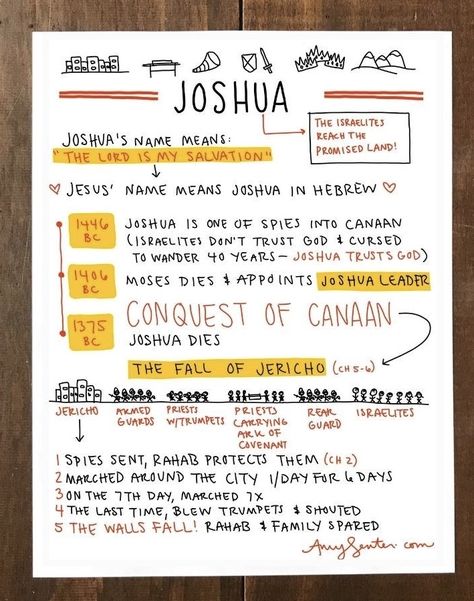 JOSHUA
THE ISRAELITES
REACH THE
PROMISED LAND!
JOSHUA'S NAME MEANS:
"THE LORD IS MY SALVATION"
JESUS' NAME MEANS JOSHUA IN HEBREW
1446
BC
JOSHUA IS ONE OF SPIES INTO CANAAN
(ISRAELITES DON'T TRUST GOD & CURSED
TO WANDER 40 YEARS— JOSHUA TRUSTS GOD)
1406
BC
MOSES DIES & APPOINTS JOSHUA LEADER
CONQUEST OF CANAAN
1375
BC
JOSHUA DIES
THE FALL OF JERICHO (CH 5-6)
JERICHO
ARMED
GUARDS
PRIESTS
W/TRUMPETS
PRIESTS
CARRYING
ARK OF
COVENANT
REAR
GUARD
ISRAELITES
1 SPIES SENT, RAHAB PROTECTS THEM (CH 2)
2 MARCHED AROUND THE CITY 1/DAY FOR 6 DAYS
3 ON THE 7TH DAY, MARCHED 7X
4 THE LAST TIME, BLEW TRUMPETS & SHOUTED
5 THE WALLS FALL! RAHAB & FAMILY SPARED
AmySenter.com